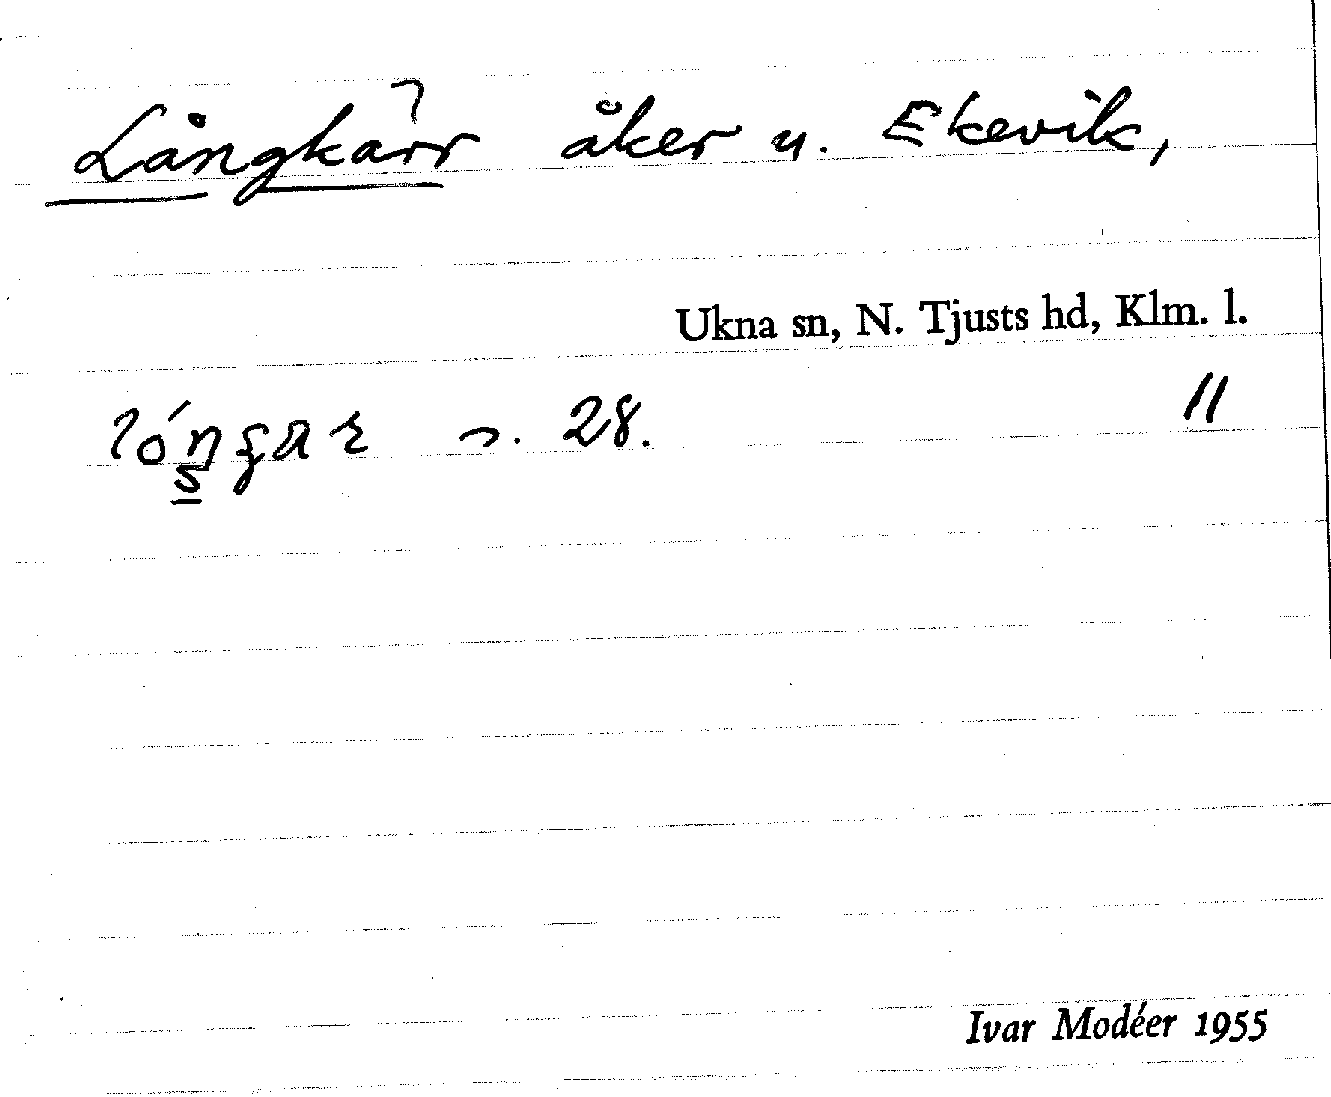 Långkärr åker u. Ekevik,
Ukna sn, N. Tjusts hd, Klm. l.
s. 28. 11
Ivar Modéer 1955